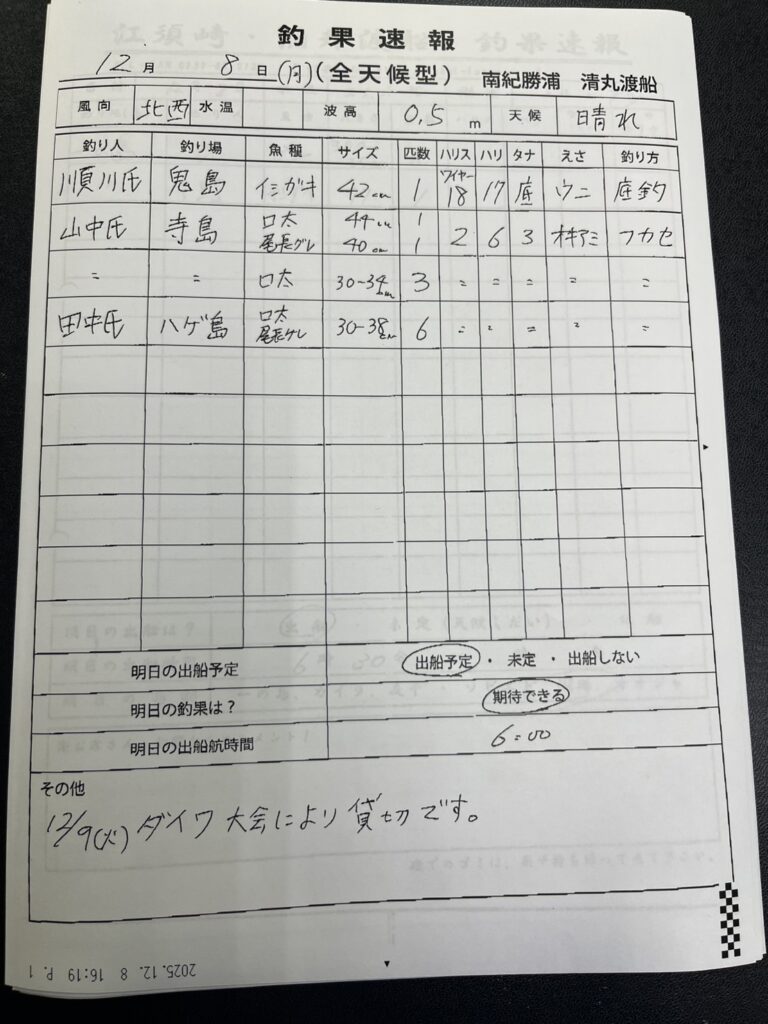 釣果速報
12月 8日(月)(全天候型) 南紀勝浦 清丸渡船
風向 北西 水温 波高 0.5m 天候 晴れ
釣り人 釣り場 魚種 サイズ 匹数 ハリス ハリ タナ えさ 釣り方
順川氏 鬼島 イシガキ 42cm 1 ワイヤー18 17 底 ウニ 底釣
山中氏 寺島 口太 44cm 1
尾長グレ 40cm 1 2 6 3 オキアミ フカセ
〃 〃 口太 30-34cm 3 〃 〃 〃 〃 〃
田中氏 ハゲ島 口太
尾長グレ 30-38cm 6 〃 〃 〃 〃 〃
明日の出船予定 出船予定・未定・出船しない
明日の釣果は? 期待できる
明日の出船航時間 6:00
その他
12/9(火) ダイワ大会により貸切です。
2025.12. 8 16:19 P. 1